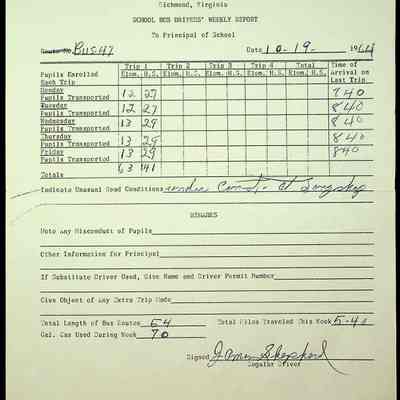 Richmond, Virginia
SCHOOL BUS DRIVERS' WEEKLY REPORT
To Principal of School
Route No Bus 47 Date 10-19- 1964
Trip 1 Trip 2 Trip 3 Trip 4 Total Time of
Pupils Enrolled Elem. H.S. Elem. H.S. Elem. H.S. Elem. H.S. Elem. H.S. Arrival on
Each Trip Last Trip
Monday
Pupils Transported 12 27 740
Tuesday
Pupils Transported 12 27 840
Wednesday
Pupils Transported 13 29 840
Thursday
Pupils Transported 13 29 840
Friday
Pupils Transported 13 29 840
Totals 63 141
Indicate Unusual Road Conditions under Const. at
REMARKS
Note Any Misconduct of Pupils
Other Information for Principal
If Substitute Driver Used, Give Name and Permit Number
Give Object of Any Extra Trip Made
Total Length of Bus Routes 54 Total Miles Traveled This Week 540
Gal. Gas Used During Week 70
Signed James Shepherd
Regular Driver